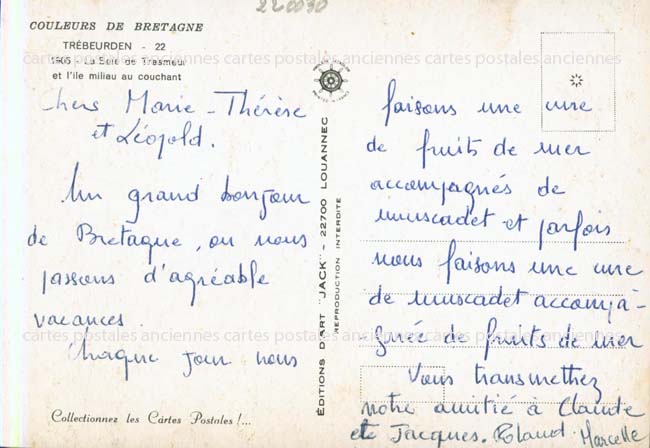 220030
COULEURS DE BRETAGNE
TRÉBEURDEN - 22
1905 - La Baie de Tresmeur
et l'île milieu au couchant
Chers Marie-Thérèse
et Léopold.
Un grand bonjour
de Bretagne, ou nous
passons d'agréable
vacances.
Chaque jour nous
Collectionnez les Cartes Postales !...
EDITIONS D'ART "JACK" - 22700 LOUANNEC
REPRODUCTION INTERDITE
faisons une cure
de fruits de mer
accompagnés de
muscadet et parfois
nous faisons une cure
de muscadet accompa-
gnée de fruits de mer
Vous transmettez
notre amitié à Claude
et Jacques. Marcelle
cartes postales anciennes cartes postales anciennes cartes postales anciennes
cartes postales anciennes cartes postales anciennes cartes postales anciennes